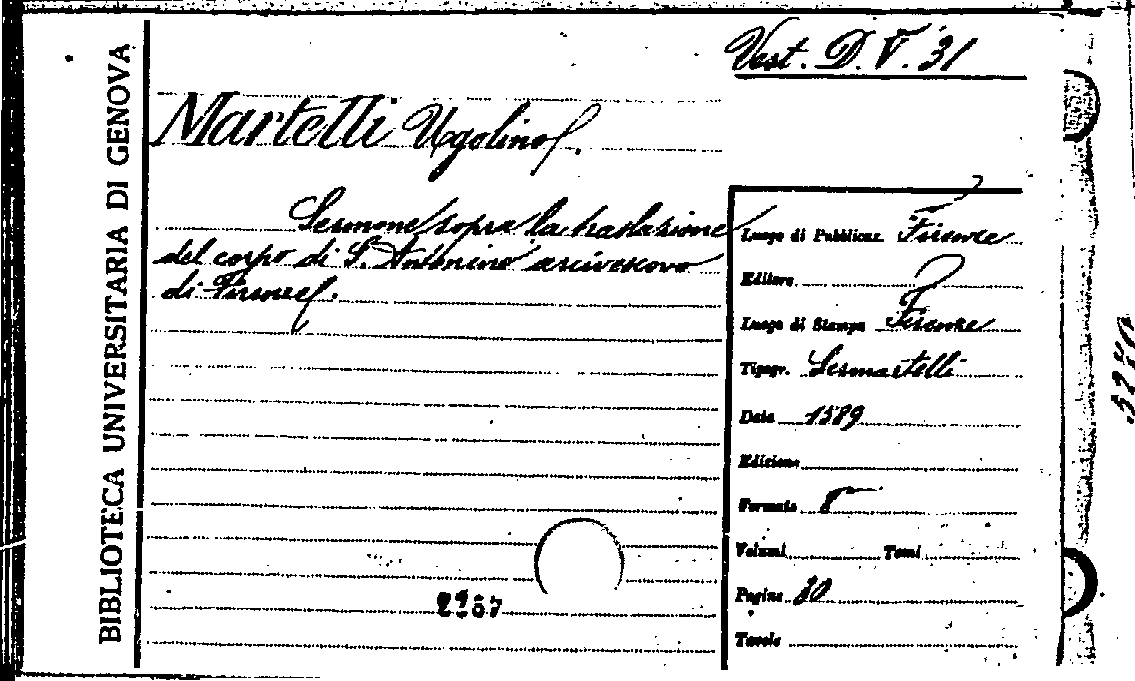 BIBLIOTECA UNIVERSITARIA DI GENOVA
Vest. D. V. 31
Martelli Ugolino.
Sermone sopra la traslazione
del corpo di S. Antonino arcivescovo
di Firenze.
Luogo di Pubblicaz. Firenze
Editore
Luogo di Stampa Firenze
Tipogr. Sermartelli
Data 1589
Edizione
Formato 8°
Volumi Tomi
Pagine 30
Tavole